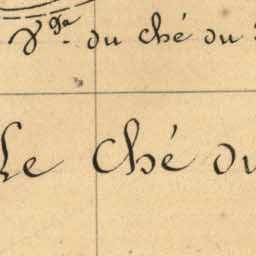 V.ge du ché du
Le Ché du